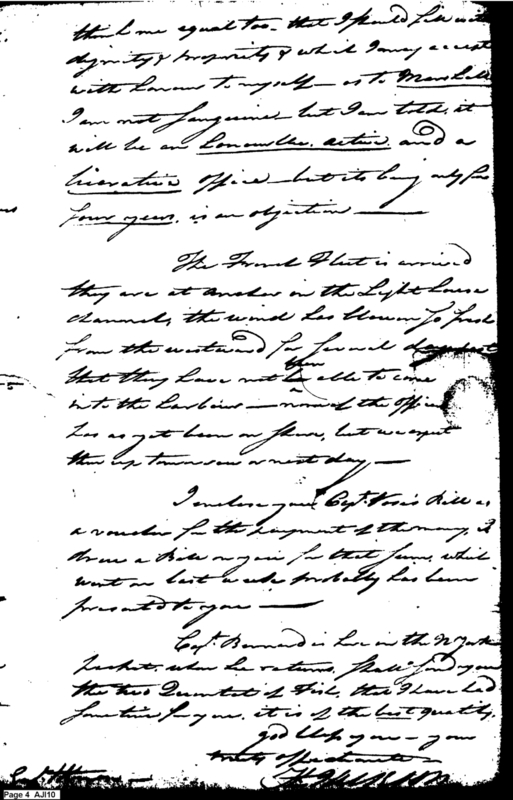 think me equal too - that I should fill with
dignity & propriety & which I may accept
with honour to myself - as to Marshall
I am not sanguine - but I am told, it
will be an honourable, active, and a
lucrative office - but its being only for
four years, is an objection -
The French Fleet is arrived
they are at anchor in the Light House
channel, the wind has blown so fresh
from the westward for several days past
that they have not been able to come
into the harbour - none of the officers
has as yet been on shore, but we expect
them up tomorrow or next day -
I enclose you Capt. Bill as
a voucher for the payment of the money, I
drew a Bill on you for that sum, which
went on last week probably has been
presented to you -
Capt. Barnard is here in the N York
packet, when he returns, shall send you
the two Quintals of Fish, that I have had
sometime for you, it is of the best quality,
god bless you - your
truly affectionate
Page 4 AJI10